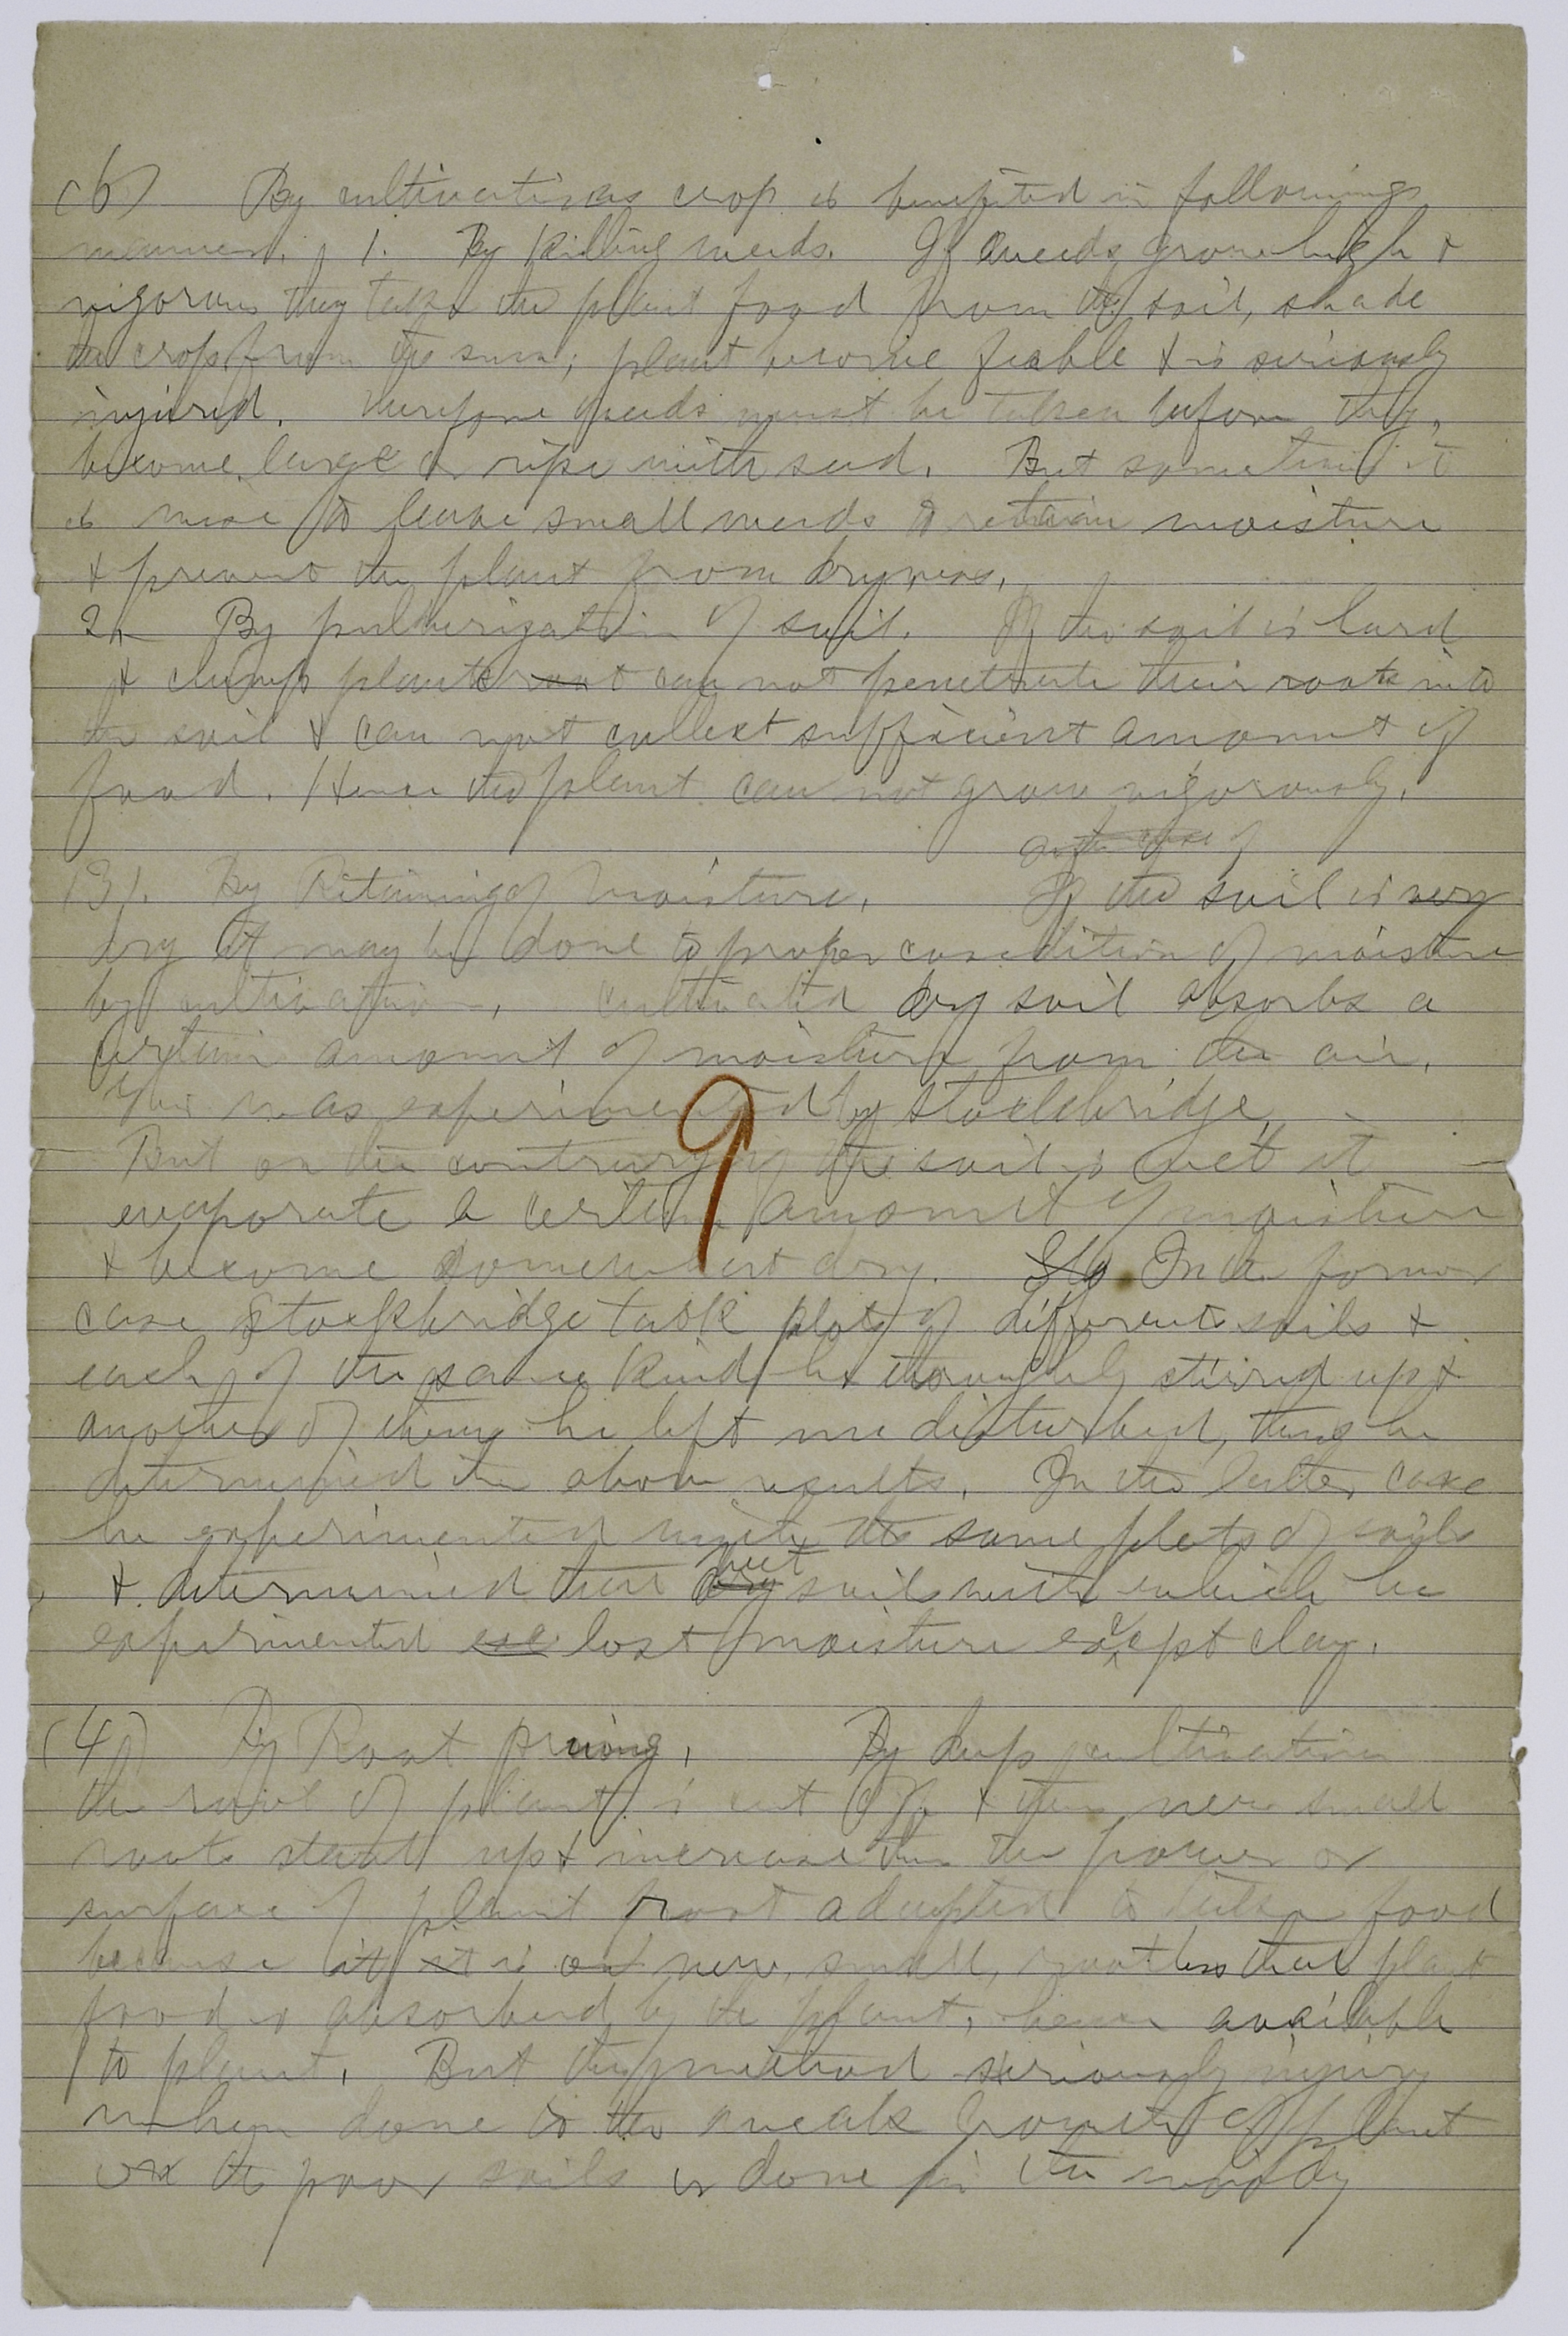 (b) By cultivation as crop is benefited in followings
manner. 1. By killing weeds. If weeds grow high &
vigorous they take the plant food from the soil, shade
the crops from the sun; plant become feable & is seriously
injured. Therefore weeds must be taken before they
become large & ripe with seed. But sometimes it
is wise to leave small weeds to retain moisture
& prevent the plant from dryness.
2. By pulverization of soil. If the soil is hard
& clumps plants root can not penetrate their roots into
the soil & can not collect sufficient amount of
food. Hence the plant can not grow vigorously.
In the case of
(3). By Retaining of moisture. If the soil is very
dry it may be done to proper condition of moisture
by cultivation. Cultivated dry soil absorbs a
certain amount of moisture from the air.
This was experimented by Stockbridge.
But on the contrary if the soil is wet it
evaporate a certain amount of moisture
& become somewhat dry. Sto In the former
case Stockbridge took plots of different soils &
each of the same kind he thoroughly stirred up &
another of them he left undisturbed, thus he
determined the above results. In the latter case
he experimented with the same plots of soils
& determined that dry wet soils with which he
experimented exc lost moisture except clay.
(4) By Root pruning. By deep cultivation
the root of plant is cut off & then new small
roots start up & increase then the power or
surface of plant root adapted to take food
because it it is on new, small, rootless that plant
food is absorbed by the plant, hence available
to plant. But this method seriously injury
when done to the weak growth of plant
or the poor soils or done in the windy
9